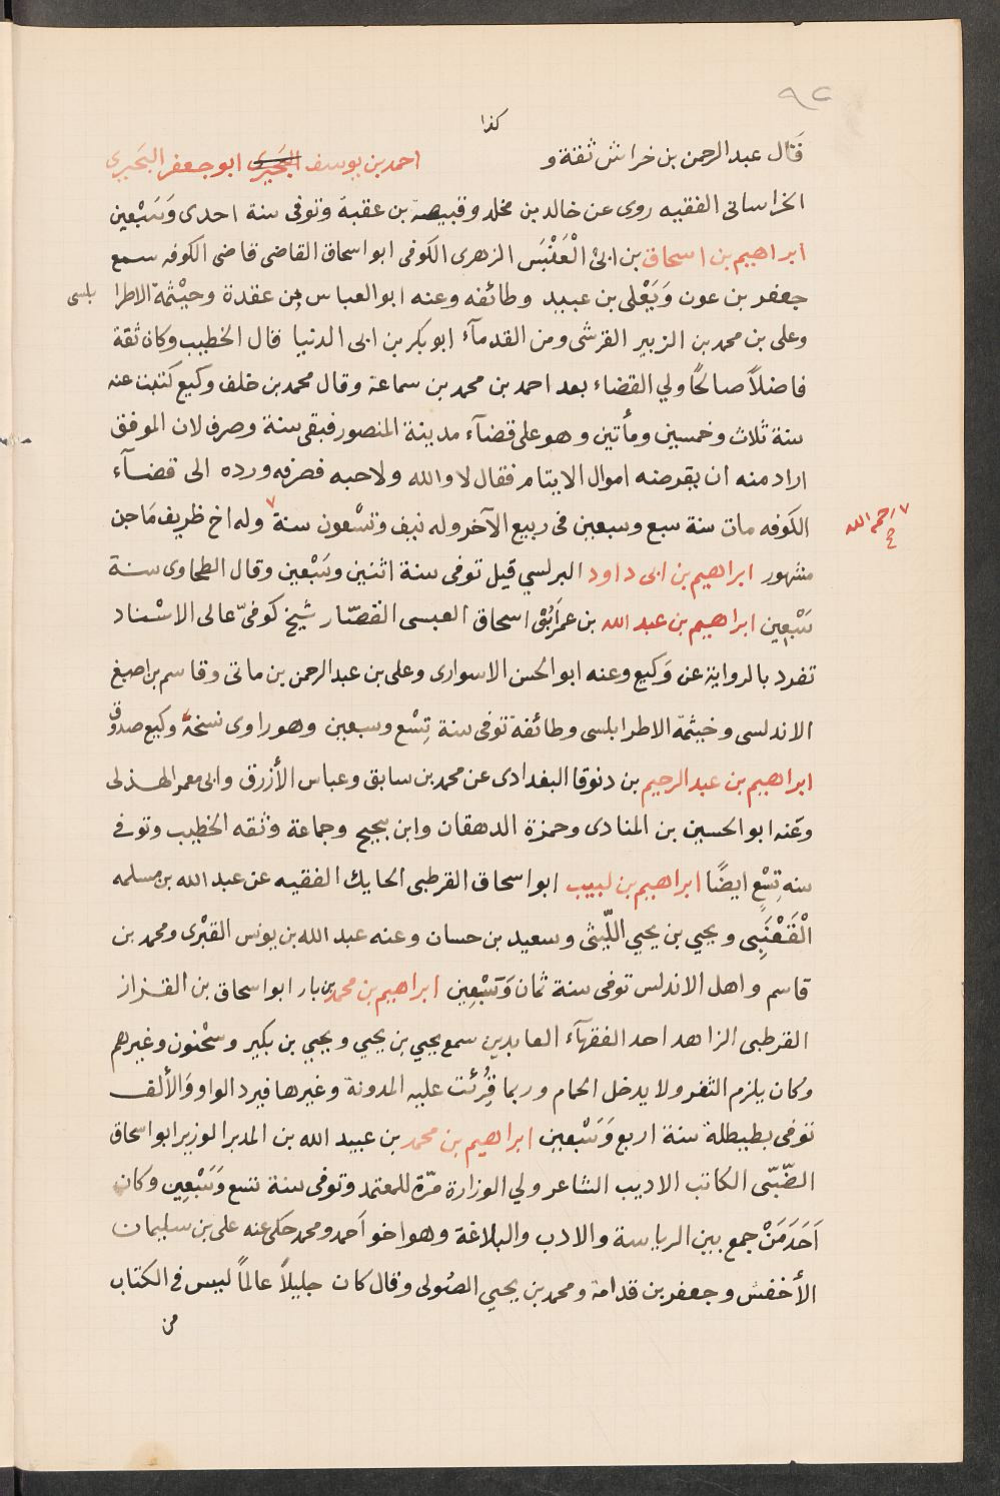 ٩٢
كذا
قَال عبد الرحمن بن خراش ثقة و احمد بن يوسف البَحيرى ابو جعفر البَحَيرى
الخراسانى الفقيه روى عن خالد بن مخلد وقبيصة بن عقبة وتوفى سنة احدى وَسَبْعين
ابراهيم بن اسحاق بن ابىْ الْعَنْبَس الزهرى الكوفى ابو اسحاق القاضى قاضى الكوفه سمع
جعفر بن عون وَيَعْلى بن عبيد وطائفه وعنه ابو العباس بن عقدة وخيْثمة الاطرا بلسى
وعلى بن محمد بن الزبير القرشى ومن القدمآء ابو بكر بن ابى الدنيا قال الخطيب وكان ثقة
فاضلاً صالحًا ولي القضاء بعد احمد بن محمد بن سماعة وقال محمد بن خلف وكيع كتبت عنه
سنة ثلاث وخمسين ومأتين وهو على قضآء مدينة المنصور فبقى سنة وصرف لان الموفق
اراد منه ان يقرضه اموال الايتام فقال لا والله ولا حبه فصرفه ورده الى قضآء
الكوفه مات سنة سبع وسبعين فى ربيع الآخر وله نيف وتسْعون سنة ٧ وله اخ ظريف مَاجن
٧ رحمه الله
صح
مشهور ابراهيم بن ابى داود البرلسي قيل توفى سنة اثنين وسَبْعين وقال الطحاوى سنة
سَبْعين ابراهيم بن عبد الله بن عمر ابُوْ اسحاق العبسى القصّار شيخ كوفىّ عالى الاسْناد
تفرد بالرواية عن وَكيع وعنه ابو الحسن الاسوارى وعلى بن عبد الرحمن بن ماتى وقاسم بن اصبغ
الاندلسى وخيثمة الاطرابلسى وطائفة توفى سنة تِسْع وسبعين وهو راوى نسخة وكيع صدوق
ابراهيم بن عبد الرحيم بن دنوقا البغدادى عن محمد بن سابق وعباس الأزرق وابى معمر الهذلى
وعَنه ابو الحسين بن المنادى وحمزة الدهقان وابن نجيح وجماعة وثقه الخطيب وتوفى
سنه تِسْعٍ ايضًا ابراهيم بن لبيب ابو اسحاق القرطبى الحايك الفقيه عن عبد الله بن مسلمه
الْقَعْنَبِى ويحيي بن يحيي اللّيثى وسعيد بن حسان وعنه عبد الله بن يونس القبْرى ومحمد بن
قاسم واهل الاندلس توفى سنة ثمان وَسَبْعِين ابراهيم بن محمد بن باز ابو اسحاق بن القزاز
القرطبى الزاهد احد الفقهآء العابدين سمع يحيي بن يحيي ويحيي بن بكير وسحْنون وغيرهم
وكان يلزم الثغر ولا يدخل الحمام وربما قِرُئت عليه المدونة وغيرها فيرد الواو وَالألف
توفى بطيطلة سنة اربع وَسَبْعين ابراهيم بن محمد بن عبيد الله بن المدبر الوزير ابو اسحاق
الضّبّى الكاتب الاديب الشاعر ولي الوزارة مرّة للمعتمد وتوفى سنة تسع وَسَبْعِين وكان
اَحَدَ مَنْ جمع بين الرياسة والادب والبلاغة وهو اخو اَحمد ومحمد حكى عنه على بن سليمان
الأخفش وجعفر بن قدامة ومحمد بن يحيي الصُولى وقال كان جليلاً عالماً ليس فى الكتاب
من